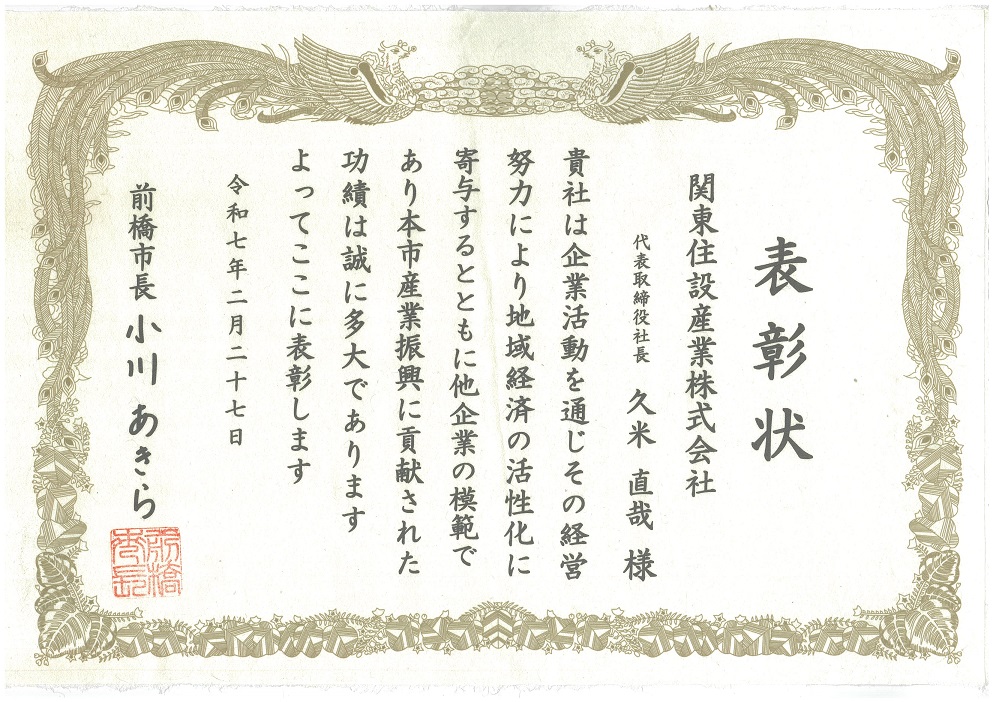 表彰状
関東住設産業株式会社
代表取締役社長 久米 直哉 様
貴社は企業活動を通じその経営
努力により地域経済の活性化に
寄与するとともに他企業の模範で
あり本市産業振興に貢献された
功績は誠に多大であります
よってここに表彰します
令和七年二月二十七日
前橋市長 小川 あきら
前橋
市長